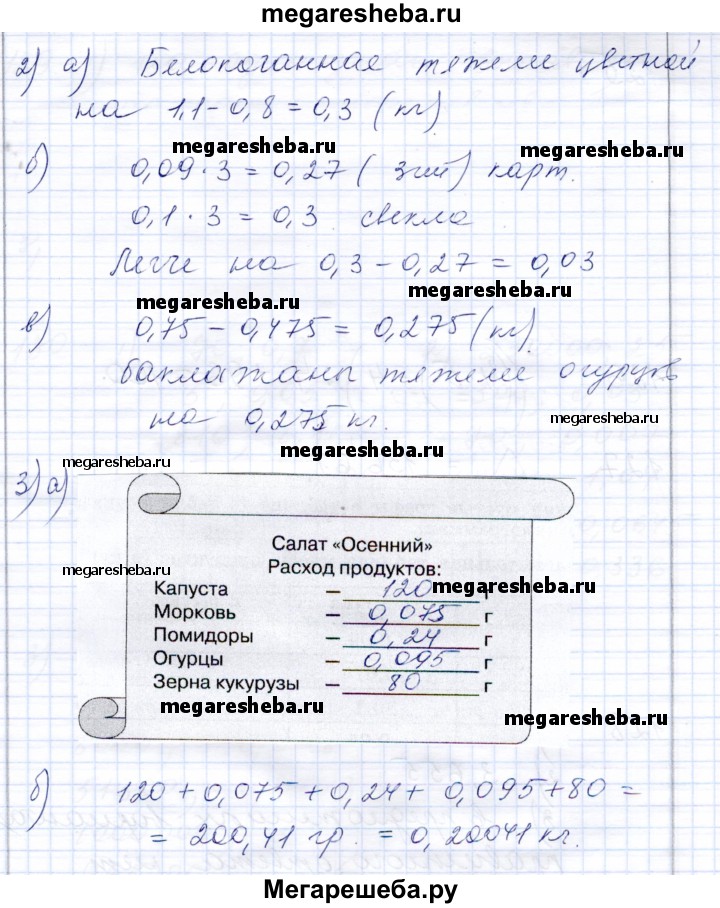 megaresheba.ru
2) а) Белокочанная тяжелее цветной
на 1,1 - 0,8 = 0,3 (кг)
megaresheba.ru megaresheba.ru
б) 0,09 · 3 = 0,27 ( 3 ) карт.
0,1 · 3 = 0,3 свекла
Легче на 0,3 - 0,27 = 0,03
megaresheba.ru megaresheba.ru
в) 0,75 - 0,475 = 0,275 (кг)
баклажаны тяжелее огурцов
на 0,275 кг.
megaresheba.ru megaresheba.ru
megaresheba.ru
3) а)
Салат «Осенний»
Расход продуктов:
megaresheba.ru megaresheba.ru
Капуста – 120 г
Морковь – 0,075 г
Помидоры – 0,24 г
Огурцы – 0,095 г
Зерна кукурузы – 80 г
megaresheba.ru megaresheba.ru
б) 120 + 0,075 + 0,24 + 0,095 + 80 =
= 200,41 гр. = 0,20041 кг.
Мегарешеба.ру